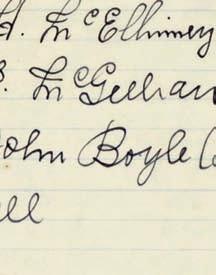 H. McElhinney
McGeehan
John Boyle (
ell